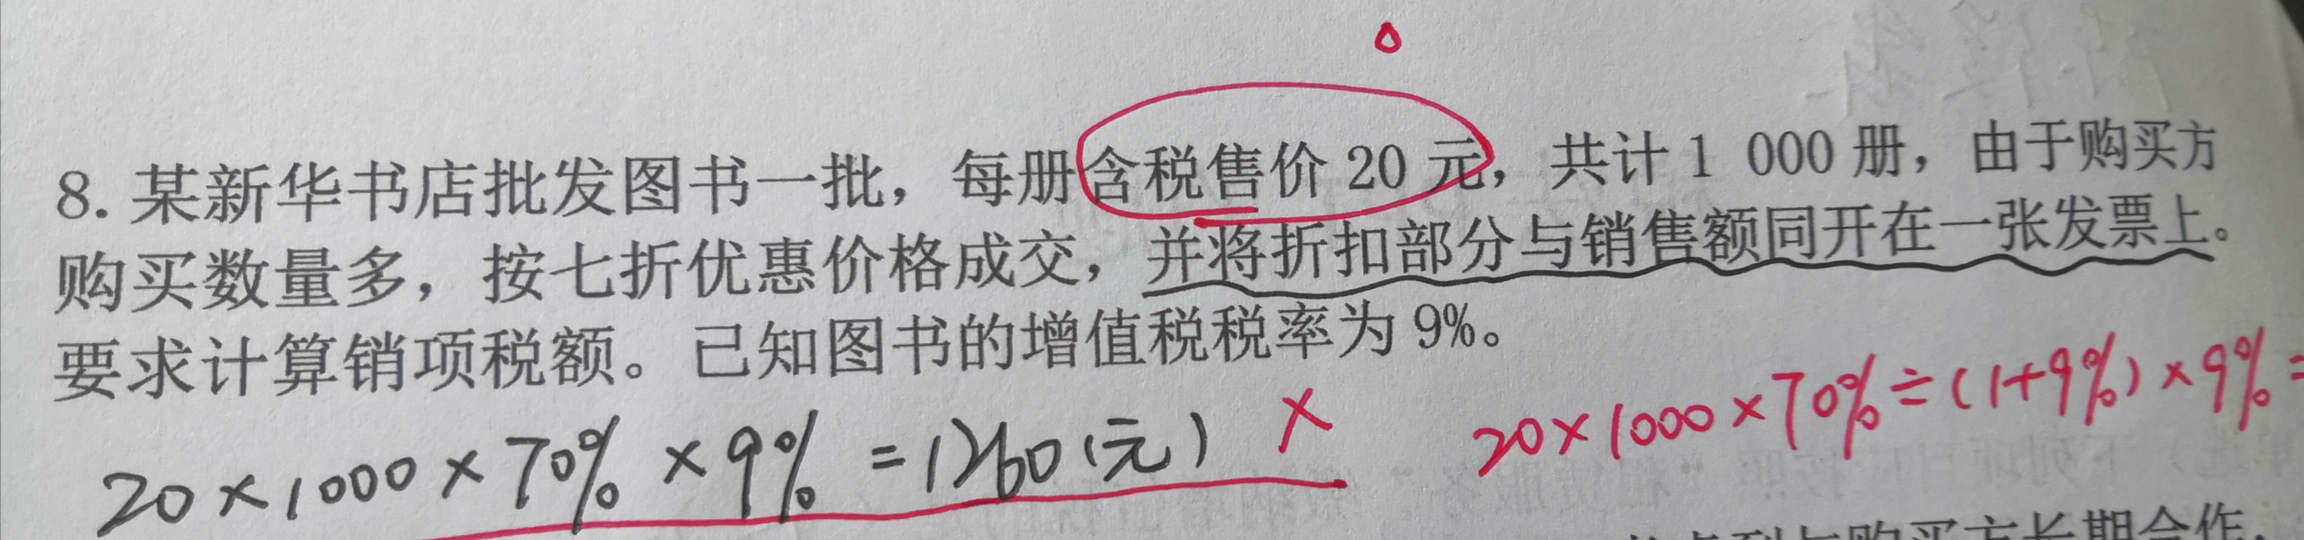 8. 某新华书店批发图书一批，每册含税售价 20 元，共计 1 000 册，由于购买方
购买数量多，按七折优惠价格成交，并将折扣部分与销售额同开在一张发票上。
要求计算销项税额。已知图书的增值税税率为 9%。
20×1000×70%×9%=1260(元) ×
20×1000×70%÷(1+9%)×9%=